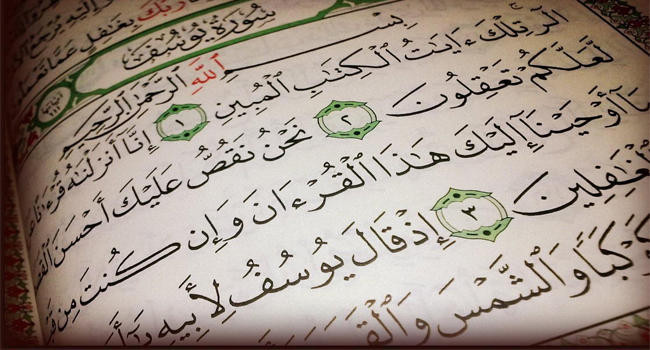 رَبُّكَ بِغَٰفِلٍ عَمَّا تَعْمَلُونَ
سُورَةُ يُوسُفَ
بِسْمِ ٱللَّهِ ٱلرَّحْمَٰنِ ٱلرَّحِيمِ
الٓر تِلْكَ ءَايَٰتُ ٱلْكِتَٰبِ ٱلْمُبِينِ ١ إِنَّآ أَنزَلْنَٰهُ قُرْءَٰنًا
لَّعَلَّكُمْ تَعْقِلُونَ ٢ نَحْنُ نَقُصُّ عَلَيْكَ أَحْسَنَ
أَوْحَيْنَآ إِلَيْكَ هَٰذَا ٱلْقُرْءَانَ وَإِن كُنتَ مِن
ٱلْغَٰفِلِينَ ٣ إِذْ قَالَ يُوسُفُ لِأَبِيهِ
كَوْكَبًا وَٱلشَّمْسَ وَٱلْقَمَرَ